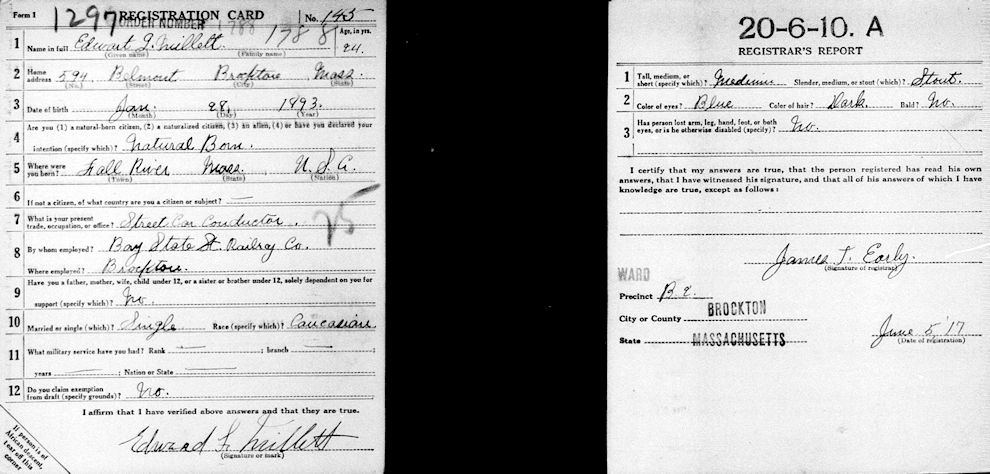 Form 1 1297 REGISTRATION CARD No. 145
ORDER NUMBER 1788
1 Name in full Edward J. Millett. 1788 Age, in yrs. 24.
(Given name) (Family name)
2 Home address 594 Belmont Brockton Mass
(No.) (Street) (City) (State)
3 Date of birth Jan. 28, 1893.
(Month) (Day) (Year)
Are you (1) a natural-born citizen, (2) a naturalized citizen, (3) an alien, (4) or have you declared your
4 intention (specify which)? Natural Born.
5 Where were you born? Fall River Mass. U.S.A.
(Town) (State) (Nation)
6 If not a citizen, of what country are you a citizen or subject?
7 What is your present trade, occupation, or office? Street Car Conductor. 25
8 By whom employed? Bay State St. Railroy Co.
Where employed? Brockton.
9 Have you a father, mother, wife, child under 12, or a sister or brother under 12, solely dependent on you for
support (specify which)? No.
10 Married or single (which)? Single Race (specify which)? Caucasian
11 What military service have you had? Rank ; branch ;
years ; Nation or State
12 Do you claim exemption from draft (specify grounds)? No.
I affirm that I have verified above answers and that they are true.
Edward F. Millett
(Signature or mark)
If person is of African descent, tear off this corner
20-6-10. A
REGISTRAR'S REPORT
1 Tall, medium, or short (specify which)? Medium Slender, medium, or stout (which)? Stout.
2 Color of eyes? Blue Color of hair? Dark. Bald? No.
3 Has person lost arm, leg, hand, foot, or both eyes, or is he otherwise disabled (specify)? No.
I certify that my answers are true, that the person registered has read his own
answers, that I have witnessed his signature, and that all of his answers of which I have
knowledge are true, except as follows:
James T. Early.
(Signature of registrar)
WARD
Precinct
City or County BROCKTON
State MASSACHUSETTS
June 5, '17
(Date of registration)